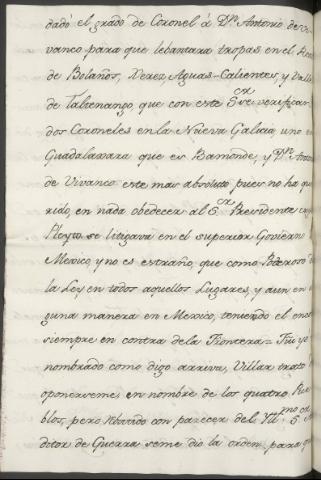 dado el grado de Coronel á Dn. Antonio de Vi
vanco para que lebantara tropas en el Rea
de Bolaños, Xerez, Aguas-Calientes, y Valle
de Taltenango, que con este Sor. se verifican
dos Coroneles en la Nueva Galicia, uno en
Guadalaxara que es Bamonde, y Dn. Anto
de Vivanco este mas absoluto pues no ha que
rido, en nada obedecer al Sor. Presidente cuyo
Pleyto se litigava en el superior Govierno
Mexico, y no es estraño, que como Poderoso
la Ley en todos aquellos Lugares, y aun en al
guna manera en Mexico, teniendo el
siempre en contra de la Frontera = Fui yó
nombrado como digo arriva, Villar trató
oponerseme en nombre de los quatro Pue
blos, pero librado con parecer del Ylmo. Sor. Au
ditor de Guerra seme dio la orden para q